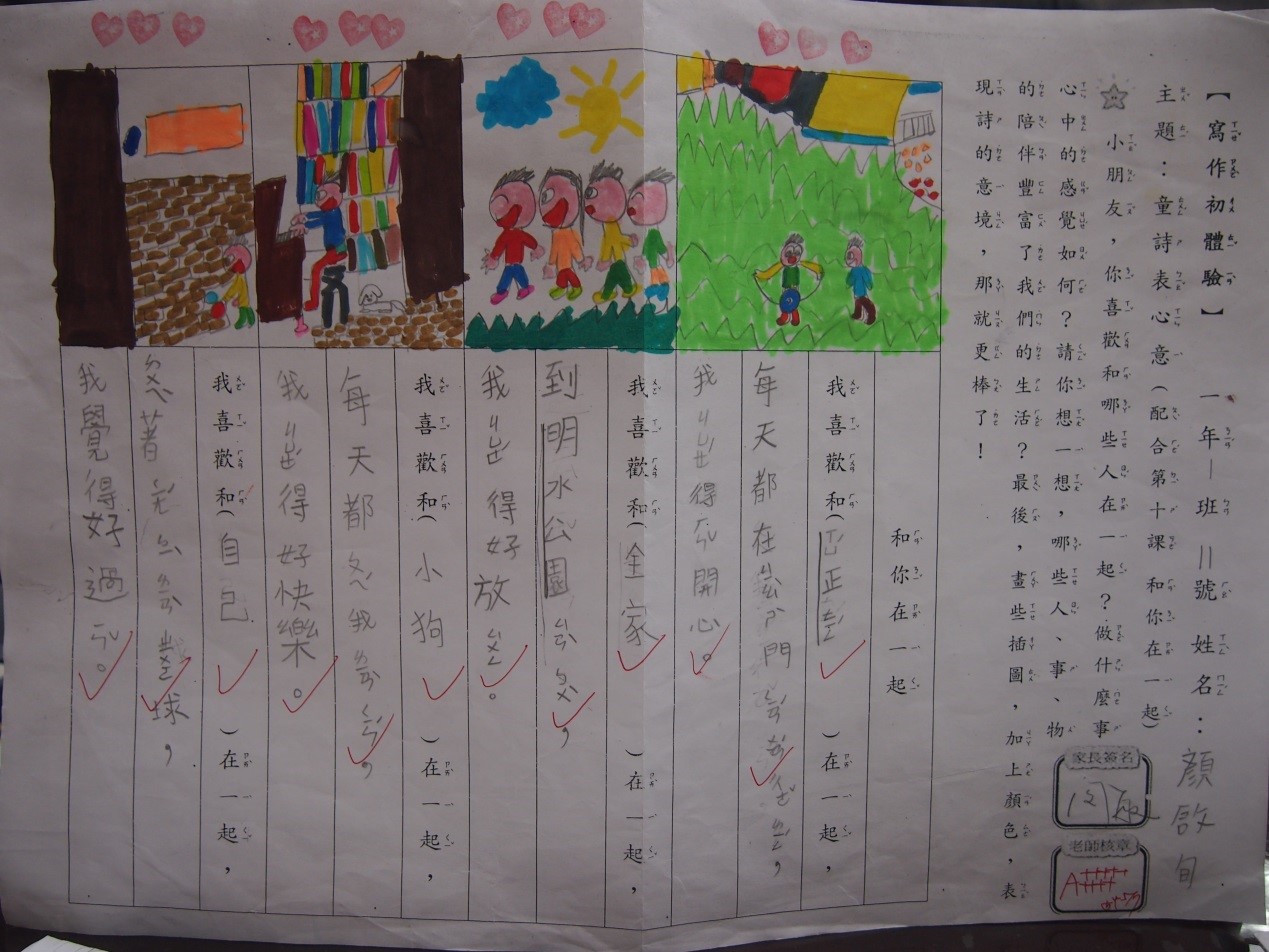 【寫作初體驗】 一年一班 11號 姓名：顏啟旬
主題：童詩表心意（配合第十課 和你在一起）
小朋友，你喜歡和哪些人在一起？做什麼事
心中的感覺如何？請你想一想，哪些人、事、物
的陪伴豐富了我們的生活？最後，畫些插圖，加上顏色，表
現詩的意境，那就更棒了！
家長簽名
老師核章
和你在一起
我喜歡和（ 正 ）在一起，
每天都在 門
我ㄐㄩㄝˊ得ㄏㄣˇ開心。
我喜歡和（全家）在一起，
到明水公園ㄙㄢˋㄅㄨˋ，
我ㄐㄩㄝˊ得好放ㄙㄨㄥ。
我喜歡和（小狗）在一起，
每天都ㄆㄟˊ我
我ㄐㄩㄝˊ得好快樂。
我喜歡和（自己）在一起，
球，
我覺得好過ㄧㄣˇ。